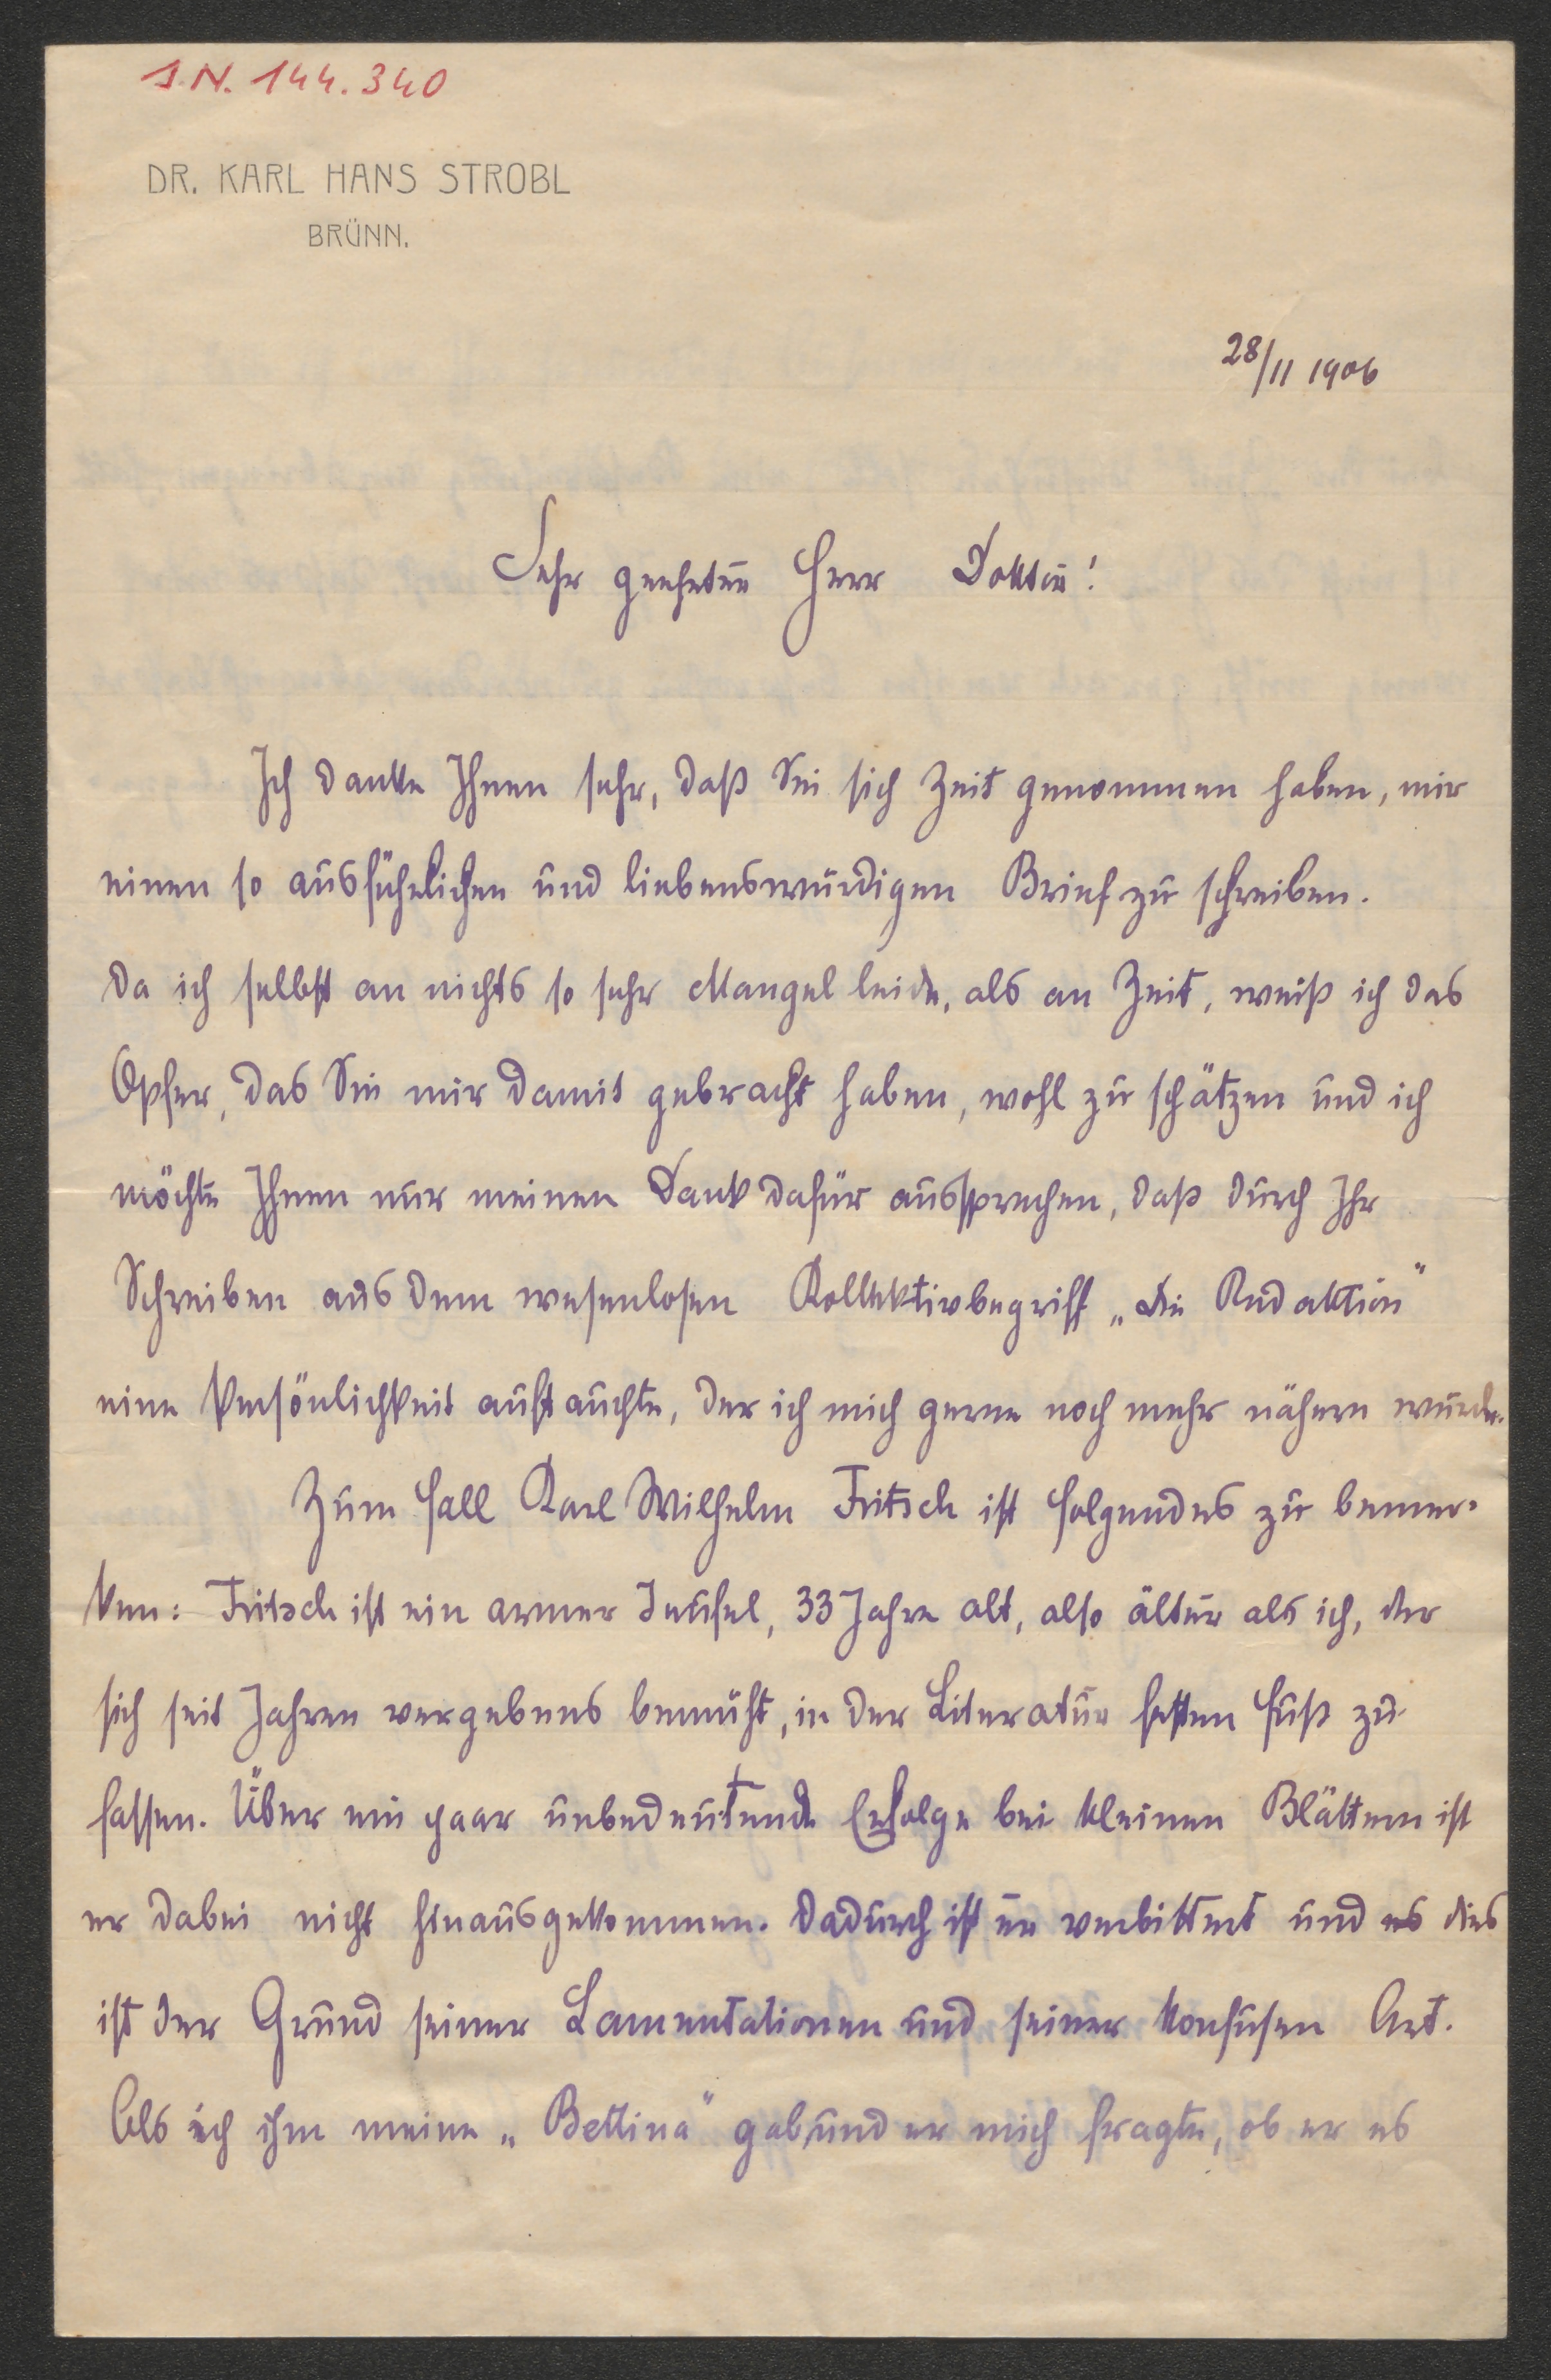 I.N. 144.340
DR. KARL HANS STROBL
BRÜNN.
28/11 1906
Sehr geehrter Herr Doktor!
Ich danke Ihnen sehr, daß Sie sich Zeit genommen haben, mir
einen so ausführlichen und liebenswürdigen Brief zu schreiben.
Da ich selbst an nichts so sehr Mangel leide, als an Zeit, weiß ich das
Opfer, das Sie mir damit gebracht haben, wohl zu schätzen und ich
möchte Ihnen nur meinen Dank dafür aussprechen, daß durch Ihr
Schreiben aus dem wesenlosen Kollektivbegriff „die Redaktion"
eine Persönlichkeit auftauchte, der ich mich gerne noch mehr nähern würde.
Zum Fall Karl Wilhelm Fritsch ist folgendes zu bemer-
ken: Fritsch ist ein armer Teufel, 33 Jahre alt, also älter als ich, der
sich seit Jahren vergebens bemüht, in der Literatur festen Fuß zu
fassen. Über ein paar unbedeutende Erfolge bei kleinen Blättern ist
er dabei nicht hinausgekommen. Dadurch ist er verbittert und es dies
ist der Grund seiner Lamentationen und seiner konfusen Art.
Als ich ihm meine „Bettina" gab und er mich fragte, ob er es